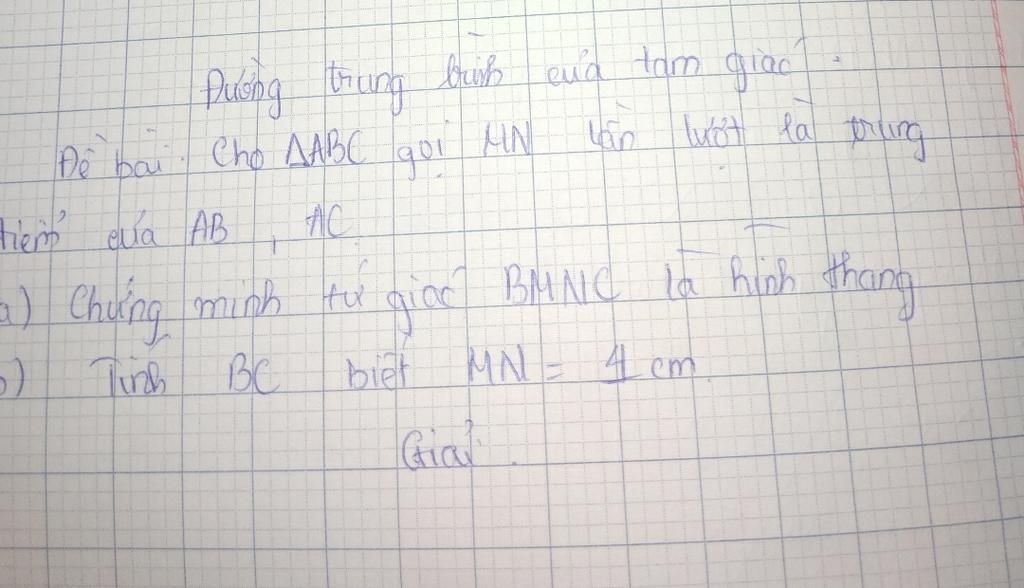 Đường trung bình của tam giác.
Đề bài. Cho ΔABC gọi MN lần lượt là trung
điểm của AB, AC
a) Chứng minh tứ giác BMNC là hình thang
b) Tính BC biết MN = 4 cm.
Giải.